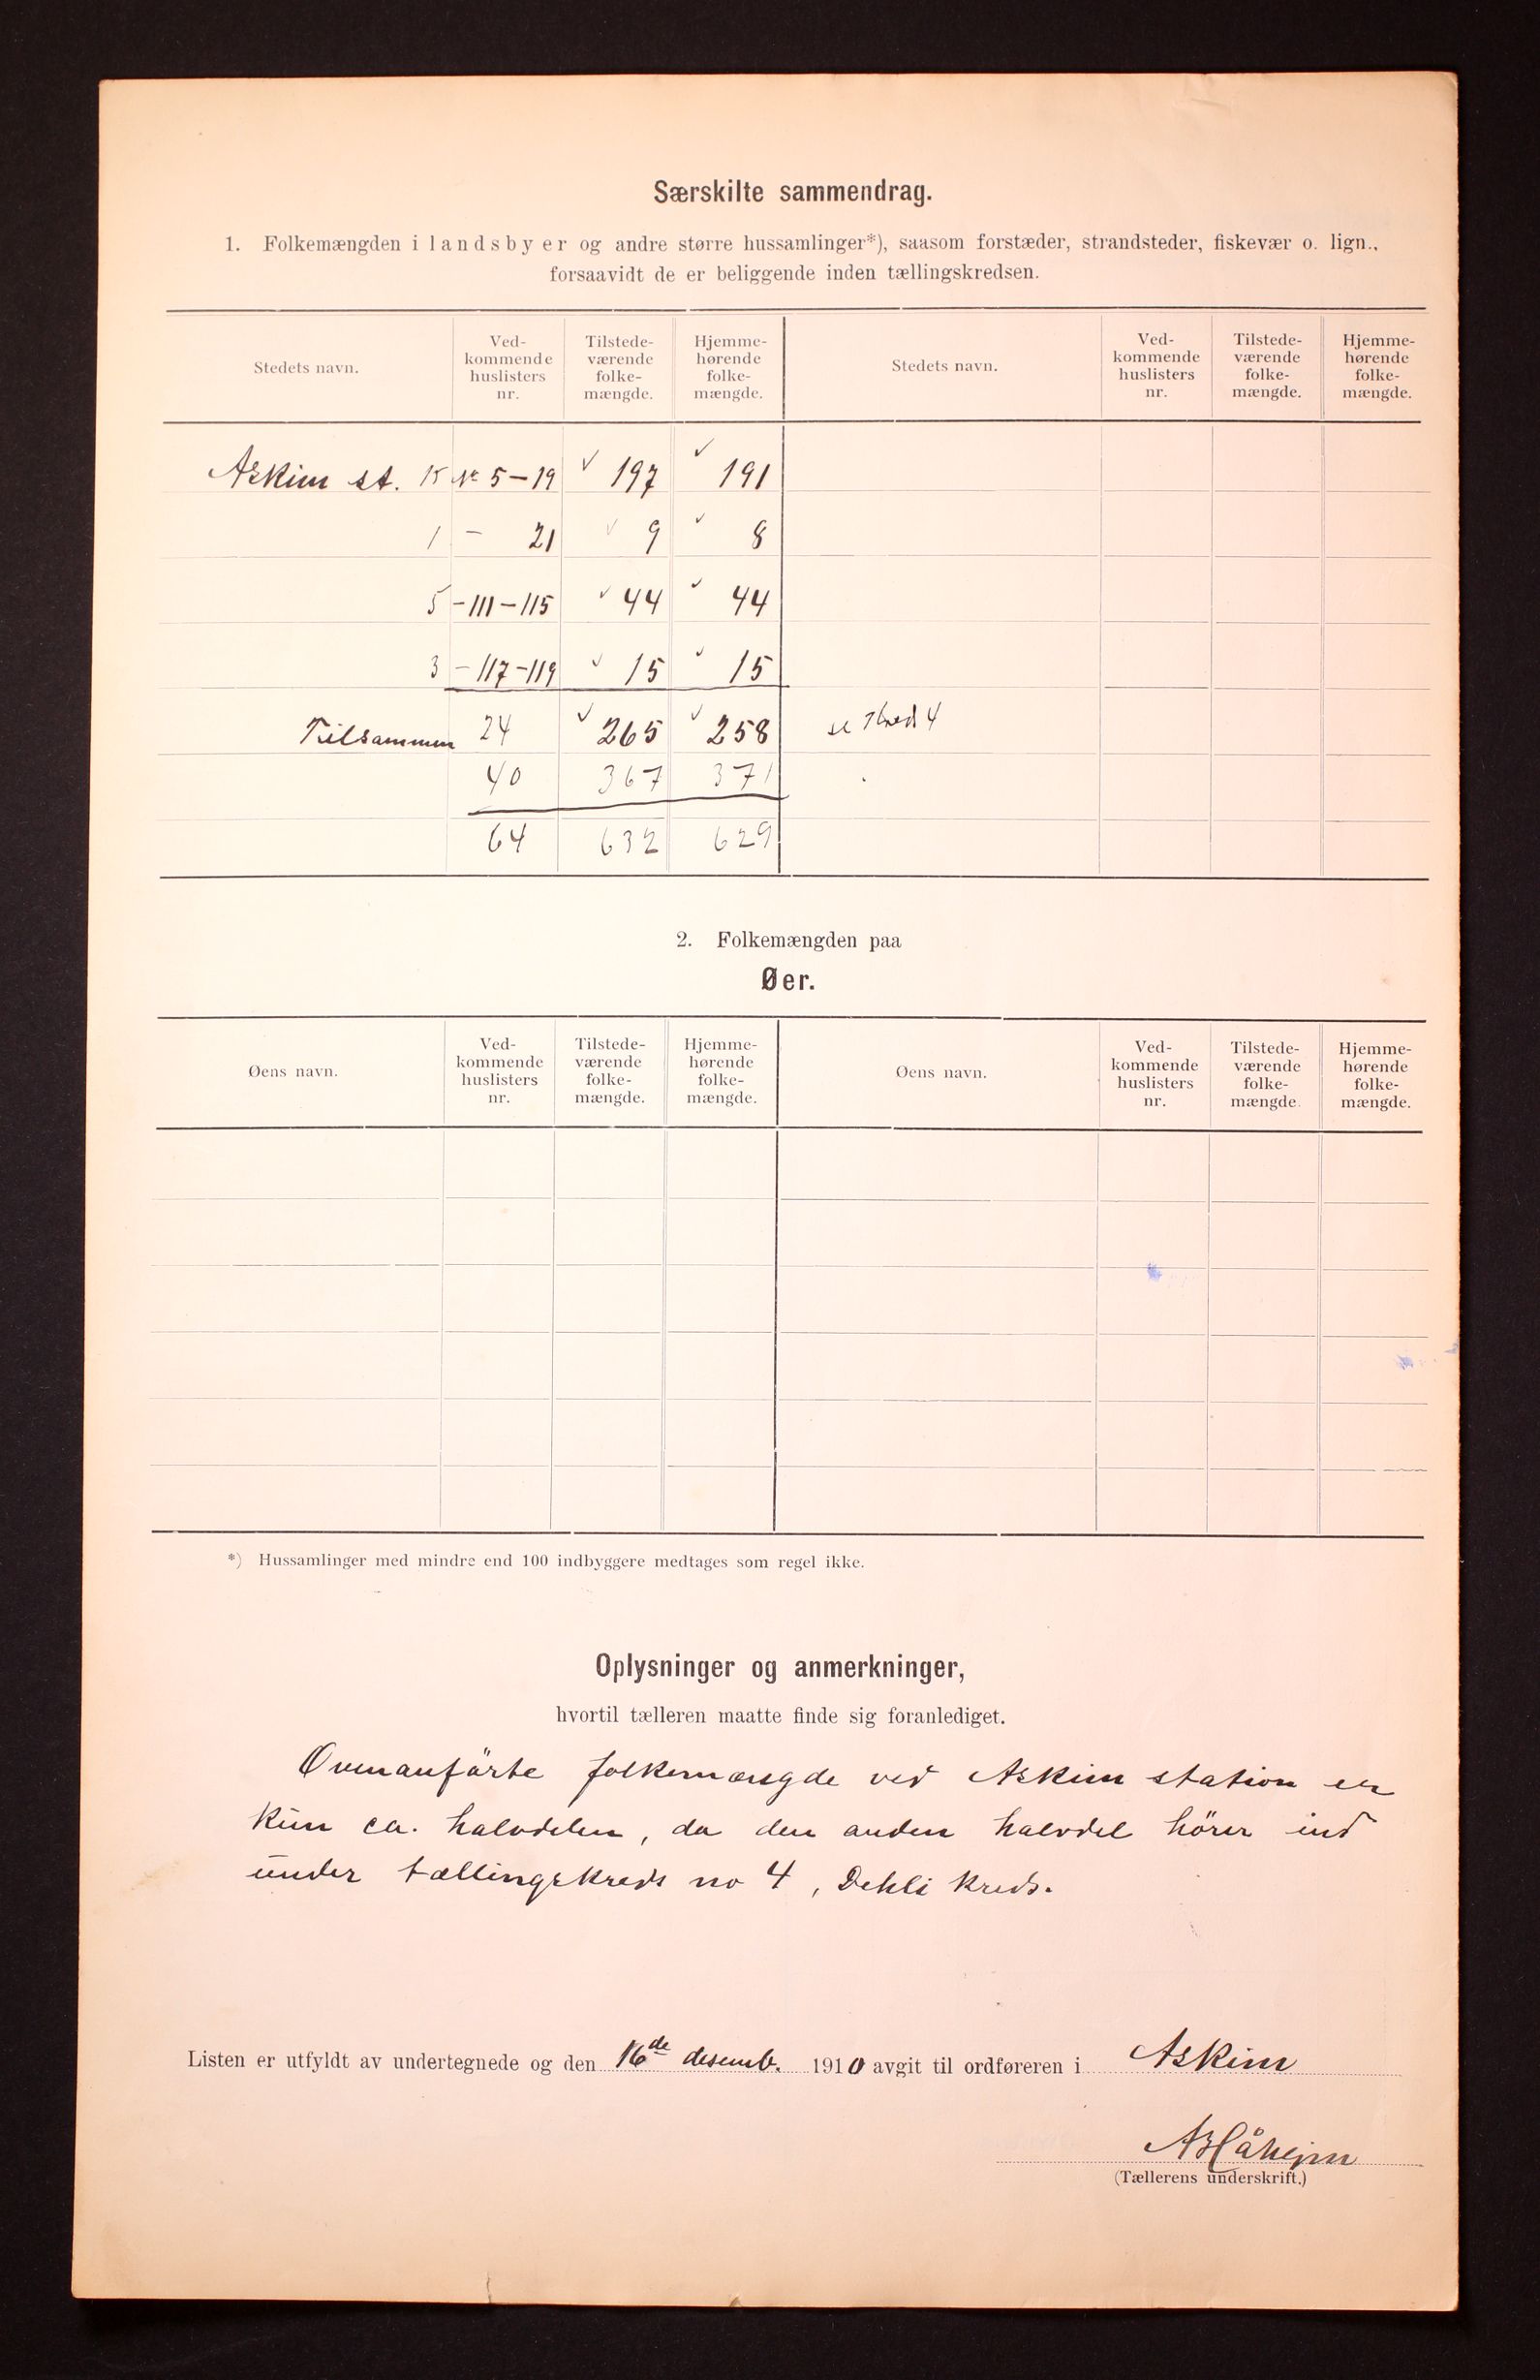 Særskilte sammendrag.
1. Folkemængden i landsbyer og andre større hussamlinger*), saasom forstæder, strandsteder, fiskevær o. lign.,
forsaavidt de er beliggende inden tællingskredsen.
Stedets navn. Ved-kommende huslisters nr. Tilstede-værende folke-mængde. Hjemme-hørende folke-mængde. Stedets navn. Ved-kommende huslisters nr. Tilstede-værende folke-mængde. Hjemme-hørende folke-mængde.
Askim st. 15 № 5-19 ✓ 197 ✓ 191
1 - 21 ✓ 9 ✓ 8
5 - 111-115 ✓ 44 ✓ 44
3 - 117-119 ✓ 15 ✓ 15
Tilsammen 24 ✓ 265 ✓ 258 se 4
40 367 371
64 632 629
2. Folkemængden paa
Øer.
Øens navn. Ved-kommende huslisters nr. Tilstede-værende folke-mængde. Hjemme-hørende folke-mængde. Øens navn. Ved-kommende huslisters nr. Tilstede-værende folke-mængde. Hjemme-hørende folke-mængde.
*) Hussamlinger med mindre end 100 indbyggere medtages som regel ikke.
Oplysninger og anmerkninger,
hvortil tælleren maatte finde sig foranlediget.
Ovenanförte folkemængde ved Askim station er
kun ca. halvdelen, da den anden halvdel hörer ind
under tællingskreds no 4, Dehli kreds.
Listen er utfyldt av undertegnede og den 16de desemb. 1910 avgit til ordføreren i Askim
A Håheim
(Tællerens underskrift.)